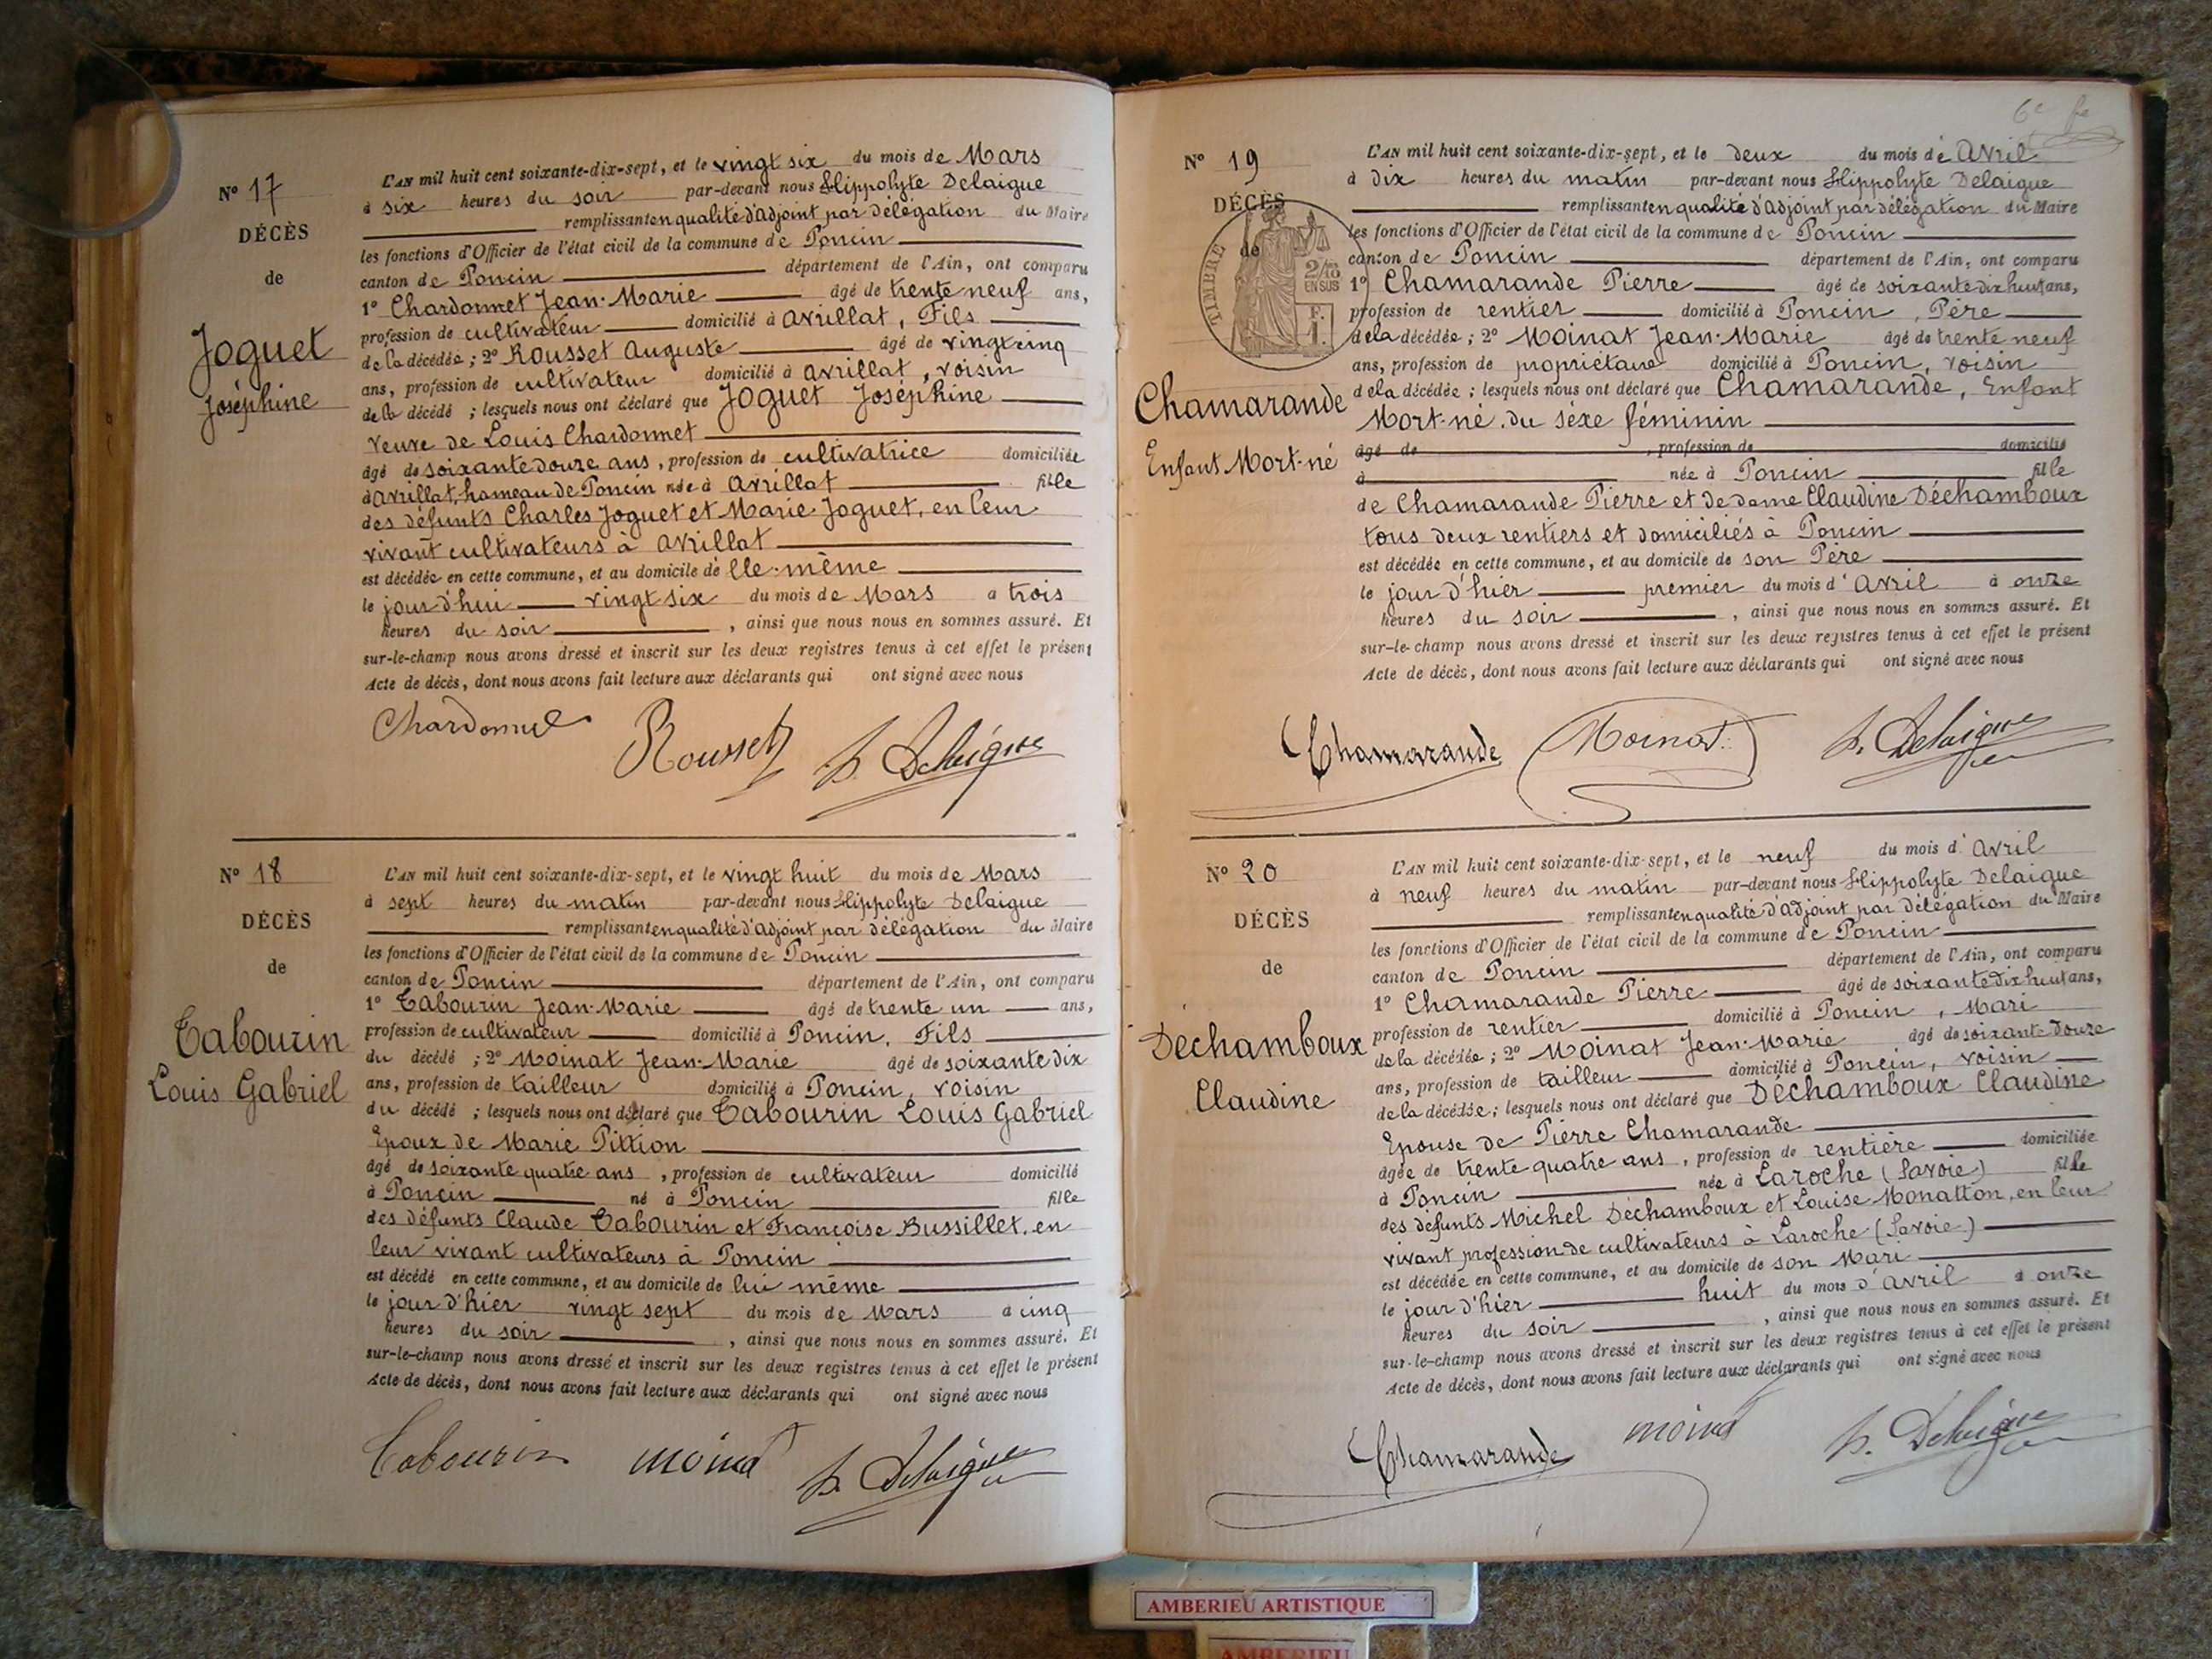 Nº 17
DÉCÈS
de
Joguet
Joséphine
L'AN mil huit cent soixante-dix-sept, et le vingt six du mois de Mars
à six heures du soir par-devant nous Hippolyte Delaigue
remplissant en qualité d'adjoint par délégation du Maire
les fonctions d'Officier de l'état civil de la commune de Poncin
canton de Poncin département de l'Ain, ont comparu
1º Chardonnet Jean-Marie âgé de trente neuf ans,
profession de cultivateur domicilié à Avrillat, Fils
de la décédée ; 2º Rousset Auguste âgé de vingt cinq
ans, profession de cultivateur domicilié à Avrillat, voisin
de la décédé ; lesquels nous ont déclaré que Joguet Joséphine
veuve de Louis Chardonnet
âgé de soixante douze ans, profession de cultivatrice domiciliée
à Avrillat, hameau de Poncin née à Avrillat fille
des défunts Charles Joguet et Marie Joguet, en leur
vivant cultivateurs à Avrillat
est décédée en cette commune, et au domicile de lle-même
le jour d'hui vingt six du mois de Mars à trois
heures du soir, ainsi que nous nous en sommes assuré. Et
sur-le-champ nous avons dressé et inscrit sur les deux registres tenus à cet effet le présent
Acte de décès, dont nous avons fait lecture aux déclarants qui ont signé avec nous
Chardonnet Rousset h. Delaigue
Nº 18
DÉCÈS
de
Tabourin
Louis Gabriel
L'AN mil huit cent soixante-dix-sept, et le vingt huit du mois de Mars
à sept heures du matin par-devant nous Hippolyte Delaigue
remplissant en qualité d'adjoint par délégation du Maire
les fonctions d'Officier de l'état civil de la commune de Poncin
canton de Poncin département de l'Ain, ont comparu
1º Tabourin Jean-Marie âgé de trente un ans,
profession de cultivateur domicilié à Poncin, Fils
du décédé ; 2º Moinat Jean-Marie âgé de soixante dix
ans, profession de tailleur domicilié à Poncin, voisin
du décédé ; lesquels nous ont déclaré que Tabourin Louis Gabriel
Epoux de Marie Pittion
âgé de soixante quatre ans, profession de cultivateur domicilié
à Poncin né à Poncin fille
des défunts Claude Tabourin et Françoise Bussillet, en
leur vivant cultivateurs à Poncin
est décédé en cette commune, et au domicile de lui même
le jour d'hier vingt sept du mois de Mars à cinq
heures du soir, ainsi que nous nous en sommes assuré. Et
sur-le-champ nous avons dressé et inscrit sur les deux registres tenus à cet effet le présent
Acte de décès, dont nous avons fait lecture aux déclarants qui ont signé avec nous
Tabourin moinat h. Delaigue
6e
Nº 19
DÉCÈS
de
TIMBRE
2/10
EN SUS
F.
1.
Chamarande
Enfant Mort-né
L'AN mil huit cent soixante-dix-sept, et le deux du mois de Avril
à dix heures du matin par-devant nous Hippolyte Delaigue
remplissant en qualité d'adjoint par délégation du Maire
les fonctions d'Officier de l'état civil de la commune de Poncin
canton de Poncin département de l'Ain, ont comparu
1º Chamarande Pierre âgé de soixante dix huit ans,
profession de rentier domicilié à Poncin, Père
de la décédée ; 2º Moinat Jean-Marie âgé de trente neuf
ans, profession de propriétaire domicilié à Poncin, voisin
de la décédée ; lesquels nous ont déclaré que Chamarande, Enfant
Mort-né. du sèxe féminin
âgé de , profession de domicilié
à née à Poncin fille
de Chamarande Pierre et de dame Claudine Déchamboux
tous deux rentiers et domiciliés à Poncin
est décédée en cette commune, et au domicile de son Père
le jour d'hier premier du mois d'Avril à onze
heures du soir, ainsi que nous nous en sommes assuré. Et
sur-le-champ nous avons dressé et inscrit sur les deux registres tenus à cet effet le présent
Acte de décès, dont nous avons fait lecture aux déclarants qui ont signé avec nous
Chamarande Moinat h. Delaigue
Nº 20
DÉCÈS
de
Déchamboux
Claudine
L'AN mil huit cent soixante-dix-sept, et le neuf du mois d'Avril
à neuf heures du matin par-devant nous Hippolyte Delaigue
remplissant en qualité d'adjoint par délégation du Maire
les fonctions d'Officier de l'état civil de la commune de Poncin
canton de Poncin département de l'Ain, ont comparu
1º Chamarande Pierre âgé de soixante dix huit ans,
profession de rentier domicilié à Poncin, Mari
de la décédée ; 2º Moinat Jean-Marie âgé de soixante douze
ans, profession de tailleur domicilié à Poncin, voisin
de la décédée ; lesquels nous ont déclaré que Déchamboux Claudine
Epouse de Pierre Chamarande
âgée de trente quatre ans, profession de rentière domiciliée
à Poncin née à Laroche (Savoie) fille
des défunts Michel Déchamboux et Louise Monatton, en leur
vivant profession de cultivateurs à Laroche (Savoie)
est décédée en cette commune, et au domicile de son Mari
le jour d'hier huit du mois d'avril à onze
heures du soir, ainsi que nous nous en sommes assuré. Et
sur-le-champ nous avons dressé et inscrit sur les deux registres tenus à cet effet le présent
Acte de décès, dont nous avons fait lecture aux déclarants qui ont signé avec nous
Chamarande moinat h. Delaigue
AMBERIEU ARTISTIQUE
AMBERIEU